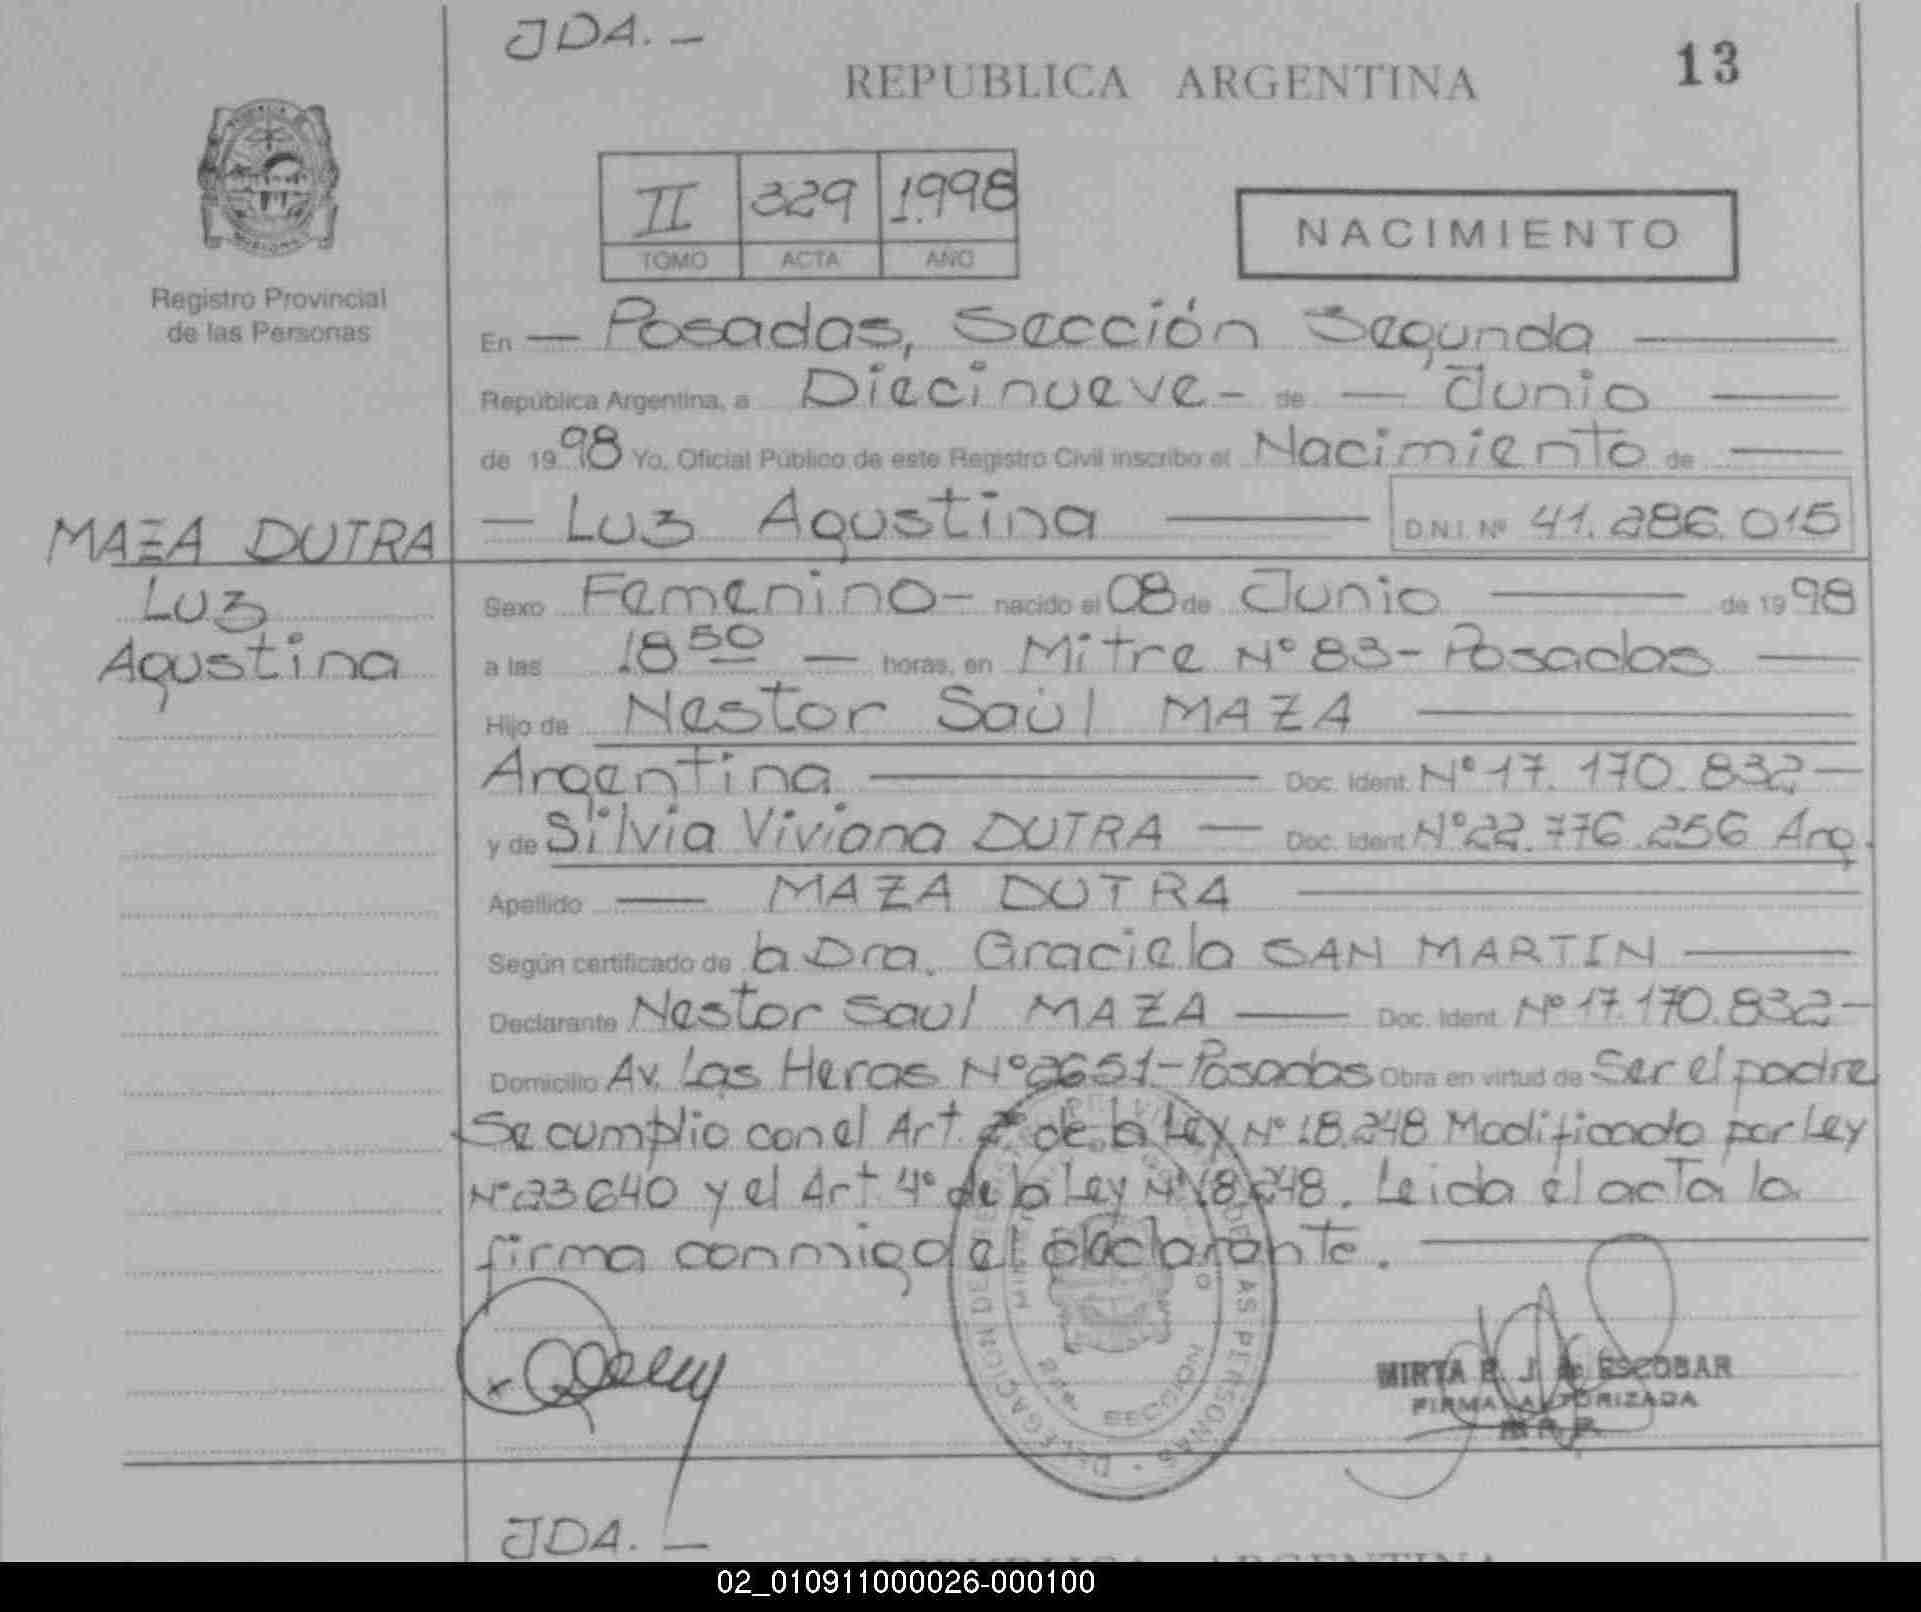 JDA. —
13
REPUBLICA ARGENTINA
II 329 1.998
TOMO ACTA AÑO
NACIMIENTO
Registro Provincial
de las Personas
En — Posadas, Sección Segunda
República Argentina, a Diecinueve - de — Junio —
de 1998 Yo, Oficial Público de este Registro Civil inscribo el Nacimiento de —
MAZA DUTRA
Luz
Agustina
— Luz Agustina — D.N.I. Nº 41.286.015
Sexo Femenino - nacido el 08 de Junio — de 1998
a las 18 50 — horas, en Mitre Nº 83 - Posadas —
Hijo de Nestor Saúl MAZA —
Argentina — Doc. Ident. Nº 17.170.832 —
y de Silvia Viviana DUTRA — Doc. Ident Nº 22.776.256 Arg.
Apellido — MAZA DUTRA —
Según certificado de la Dra. Graciela SAN MARTIN —
Declarante Nestor Saul MAZA — Doc. Ident. Nº 17.170.832 —
Domicilio Av. Las Heras Nº 2651 - Posadas Obra en virtud de Ser el padre
Se cumplio con el Art. 2º de la Ley Nº 18.248 Modificado por Ley
Nº 23640 y el Art 4º de la Ley Nº 18.248. Leida el acta la
firma conmigo el declarante. —
DELEGACION DE LAS PERSONAS
2da SECCION
MIRTA E. J. de ESCOBAR
FIRMA AUTORIZADA
JDA. —
REPUBLICA ARGENTINA
02_010911000026-000100